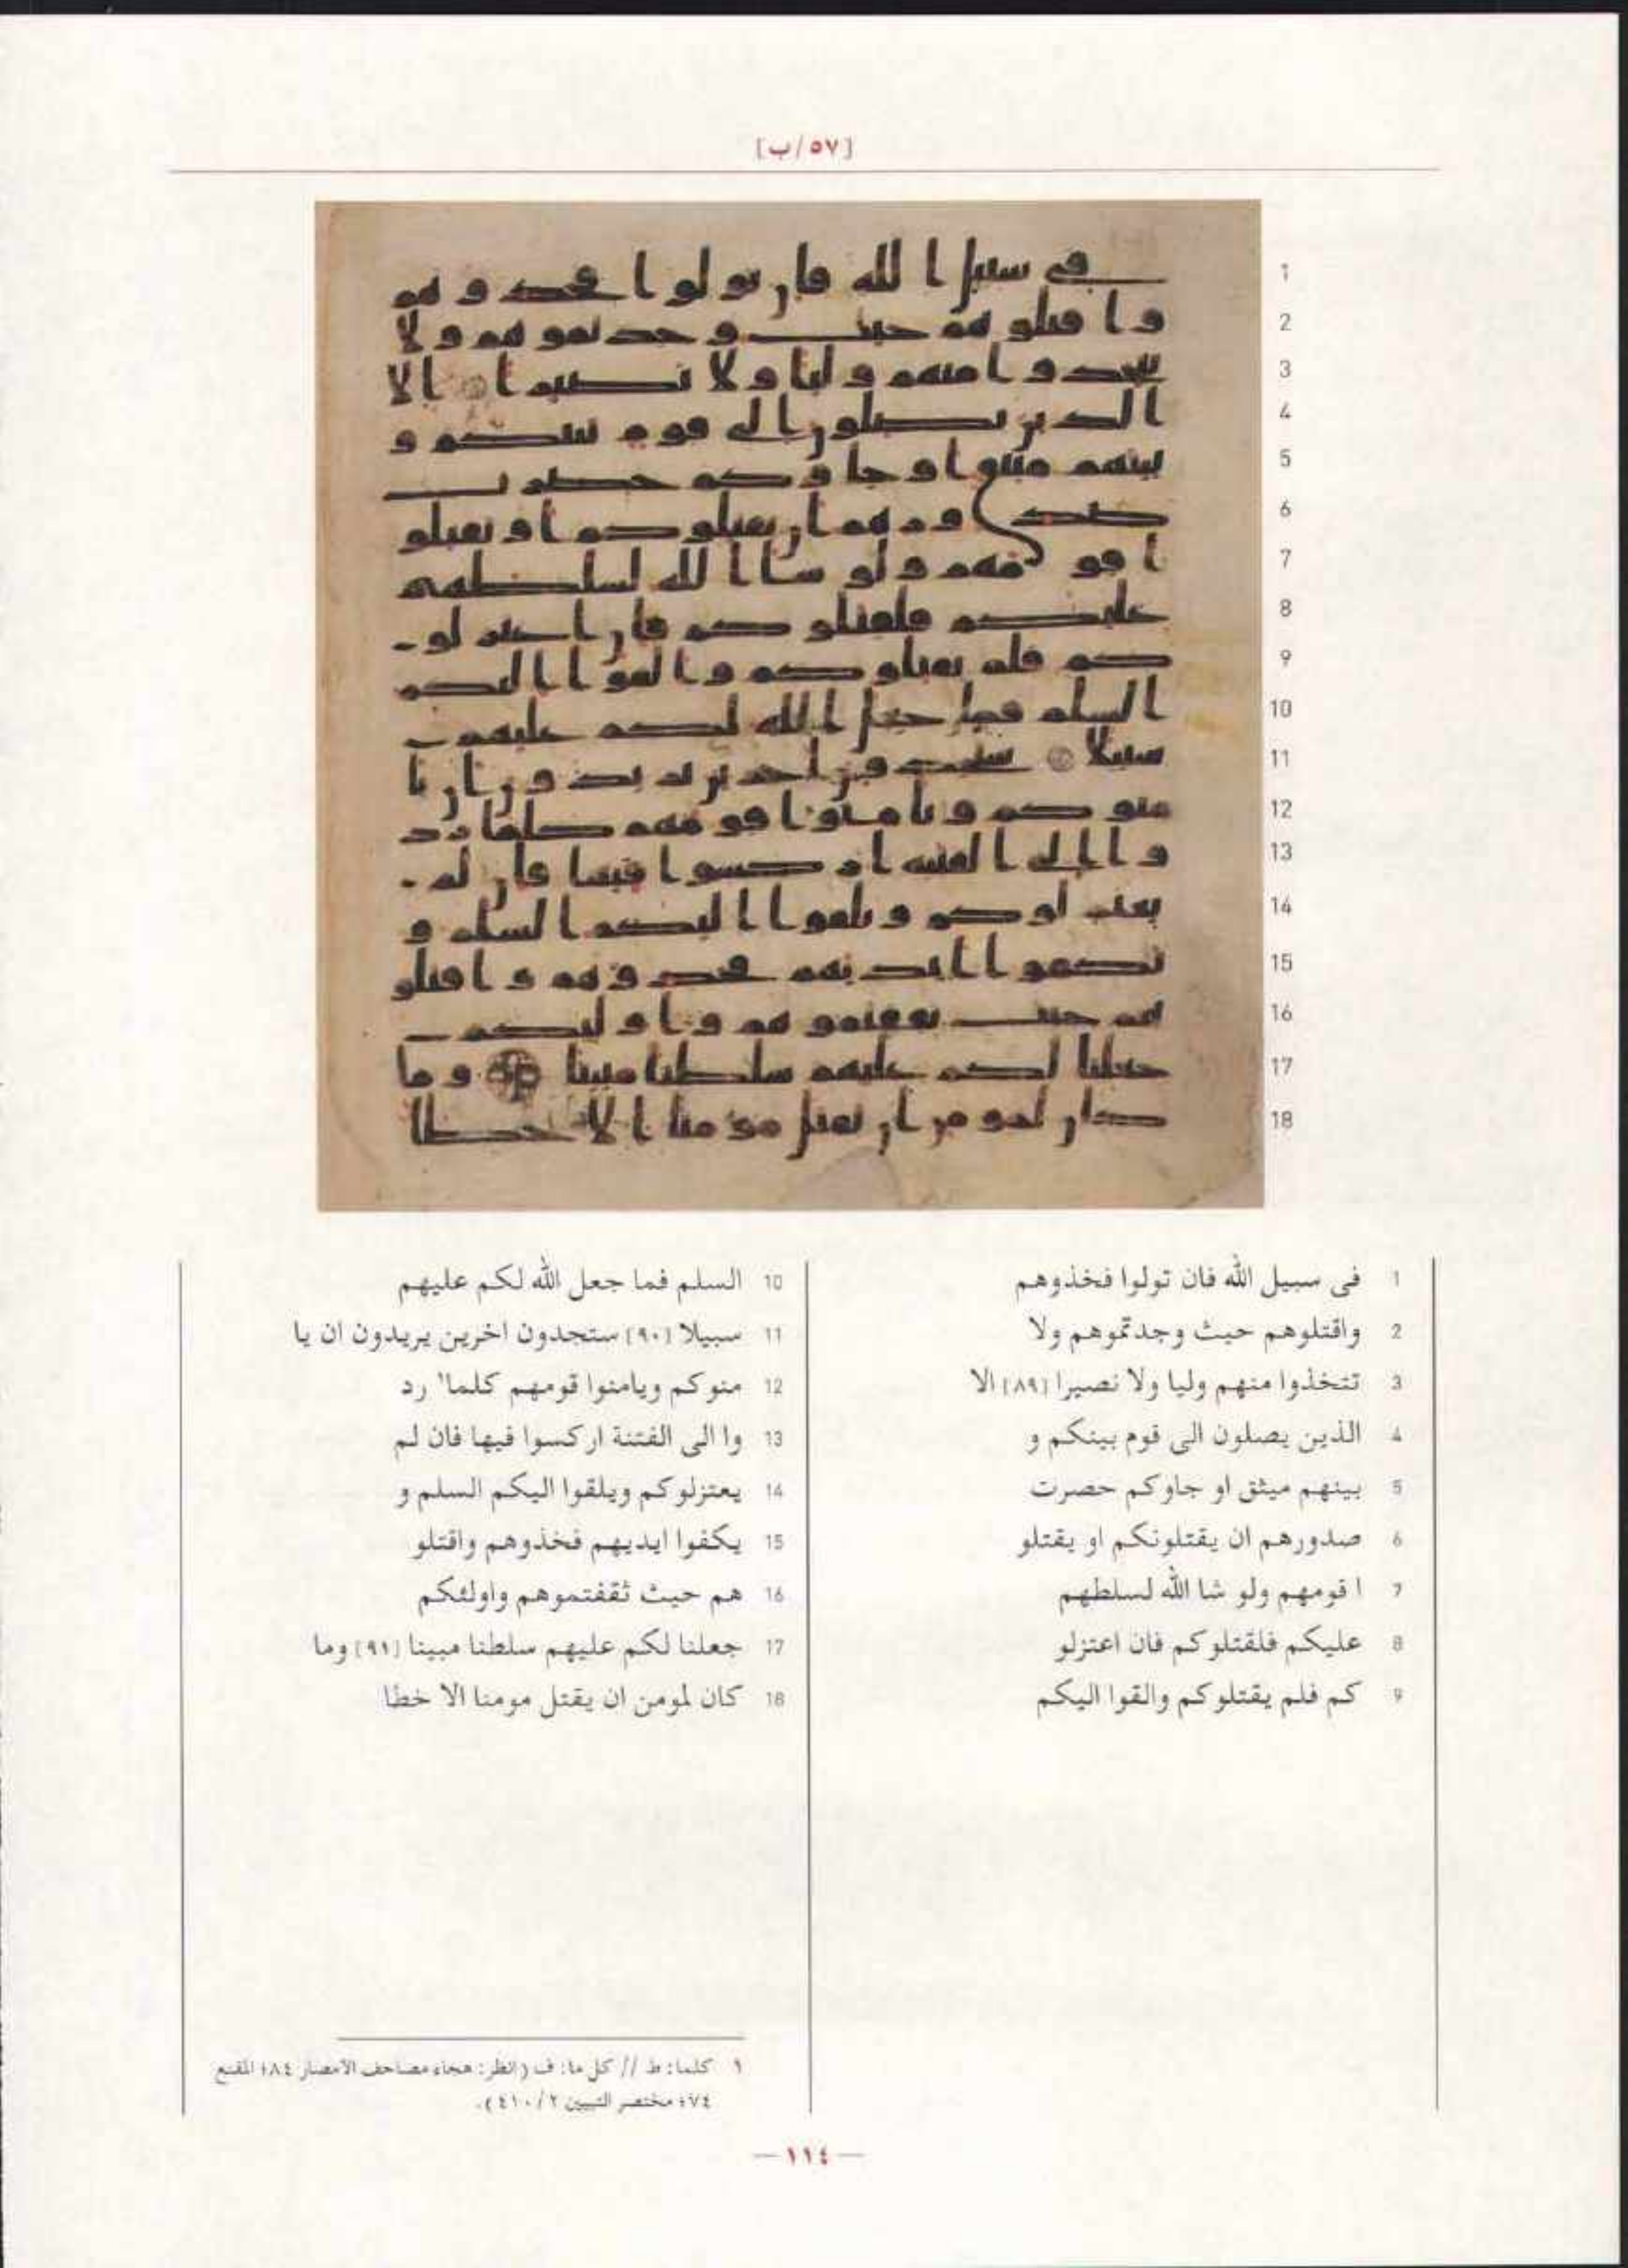 [٥٧/ب]
1
2
3
4
5
6
7
8
9
10
11
12
13
14
15
16
17
18
1 فى سبيل الله فان تولوا فخذوهم
2 واقتلوهم حيث وجدتموهم ولا
3 تتخذوا منهم وليا ولا نصيرا [٨٩] الا
4 الذين يصلون الى قوم بينكم و
5 بينهم ميثق او جاوكم حصرت
6 صدورهم ان يقتلونكم او يقتلو
7 ا قومهم ولو شا الله لسلطهم
8 عليكم فلقتلوكم فان اعتزلو
9 كم فلم يقتلوكم والقوا اليكم
10 السلم فما جعل الله لكم عليهم
11 سبيلا [٩٠] ستجدون اخرين يريدون ان يا
12 منوكم ويامنوا قومهم كلما١ رد
13 وا الى الفتنة اركسوا فيها فان لم
14 يعتزلوكم ويلقوا اليكم السلم و
15 يكفوا ايديهم فخذوهم واقتلو
16 هم حيث ثقفتموهم واولئكم
17 جعلنا لكم عليهم سلطنا مبينا [٩١] وما
18 كان لمومن ان يقتل مومنا الا خطا
١ كلما: ط // كل ما: ف (انظر: هجاء مصاحف الامصار ٨٤؛ المقنع
٧٤؛ مختصر التبيين ٤١٠/٢).
— ١١٤ —